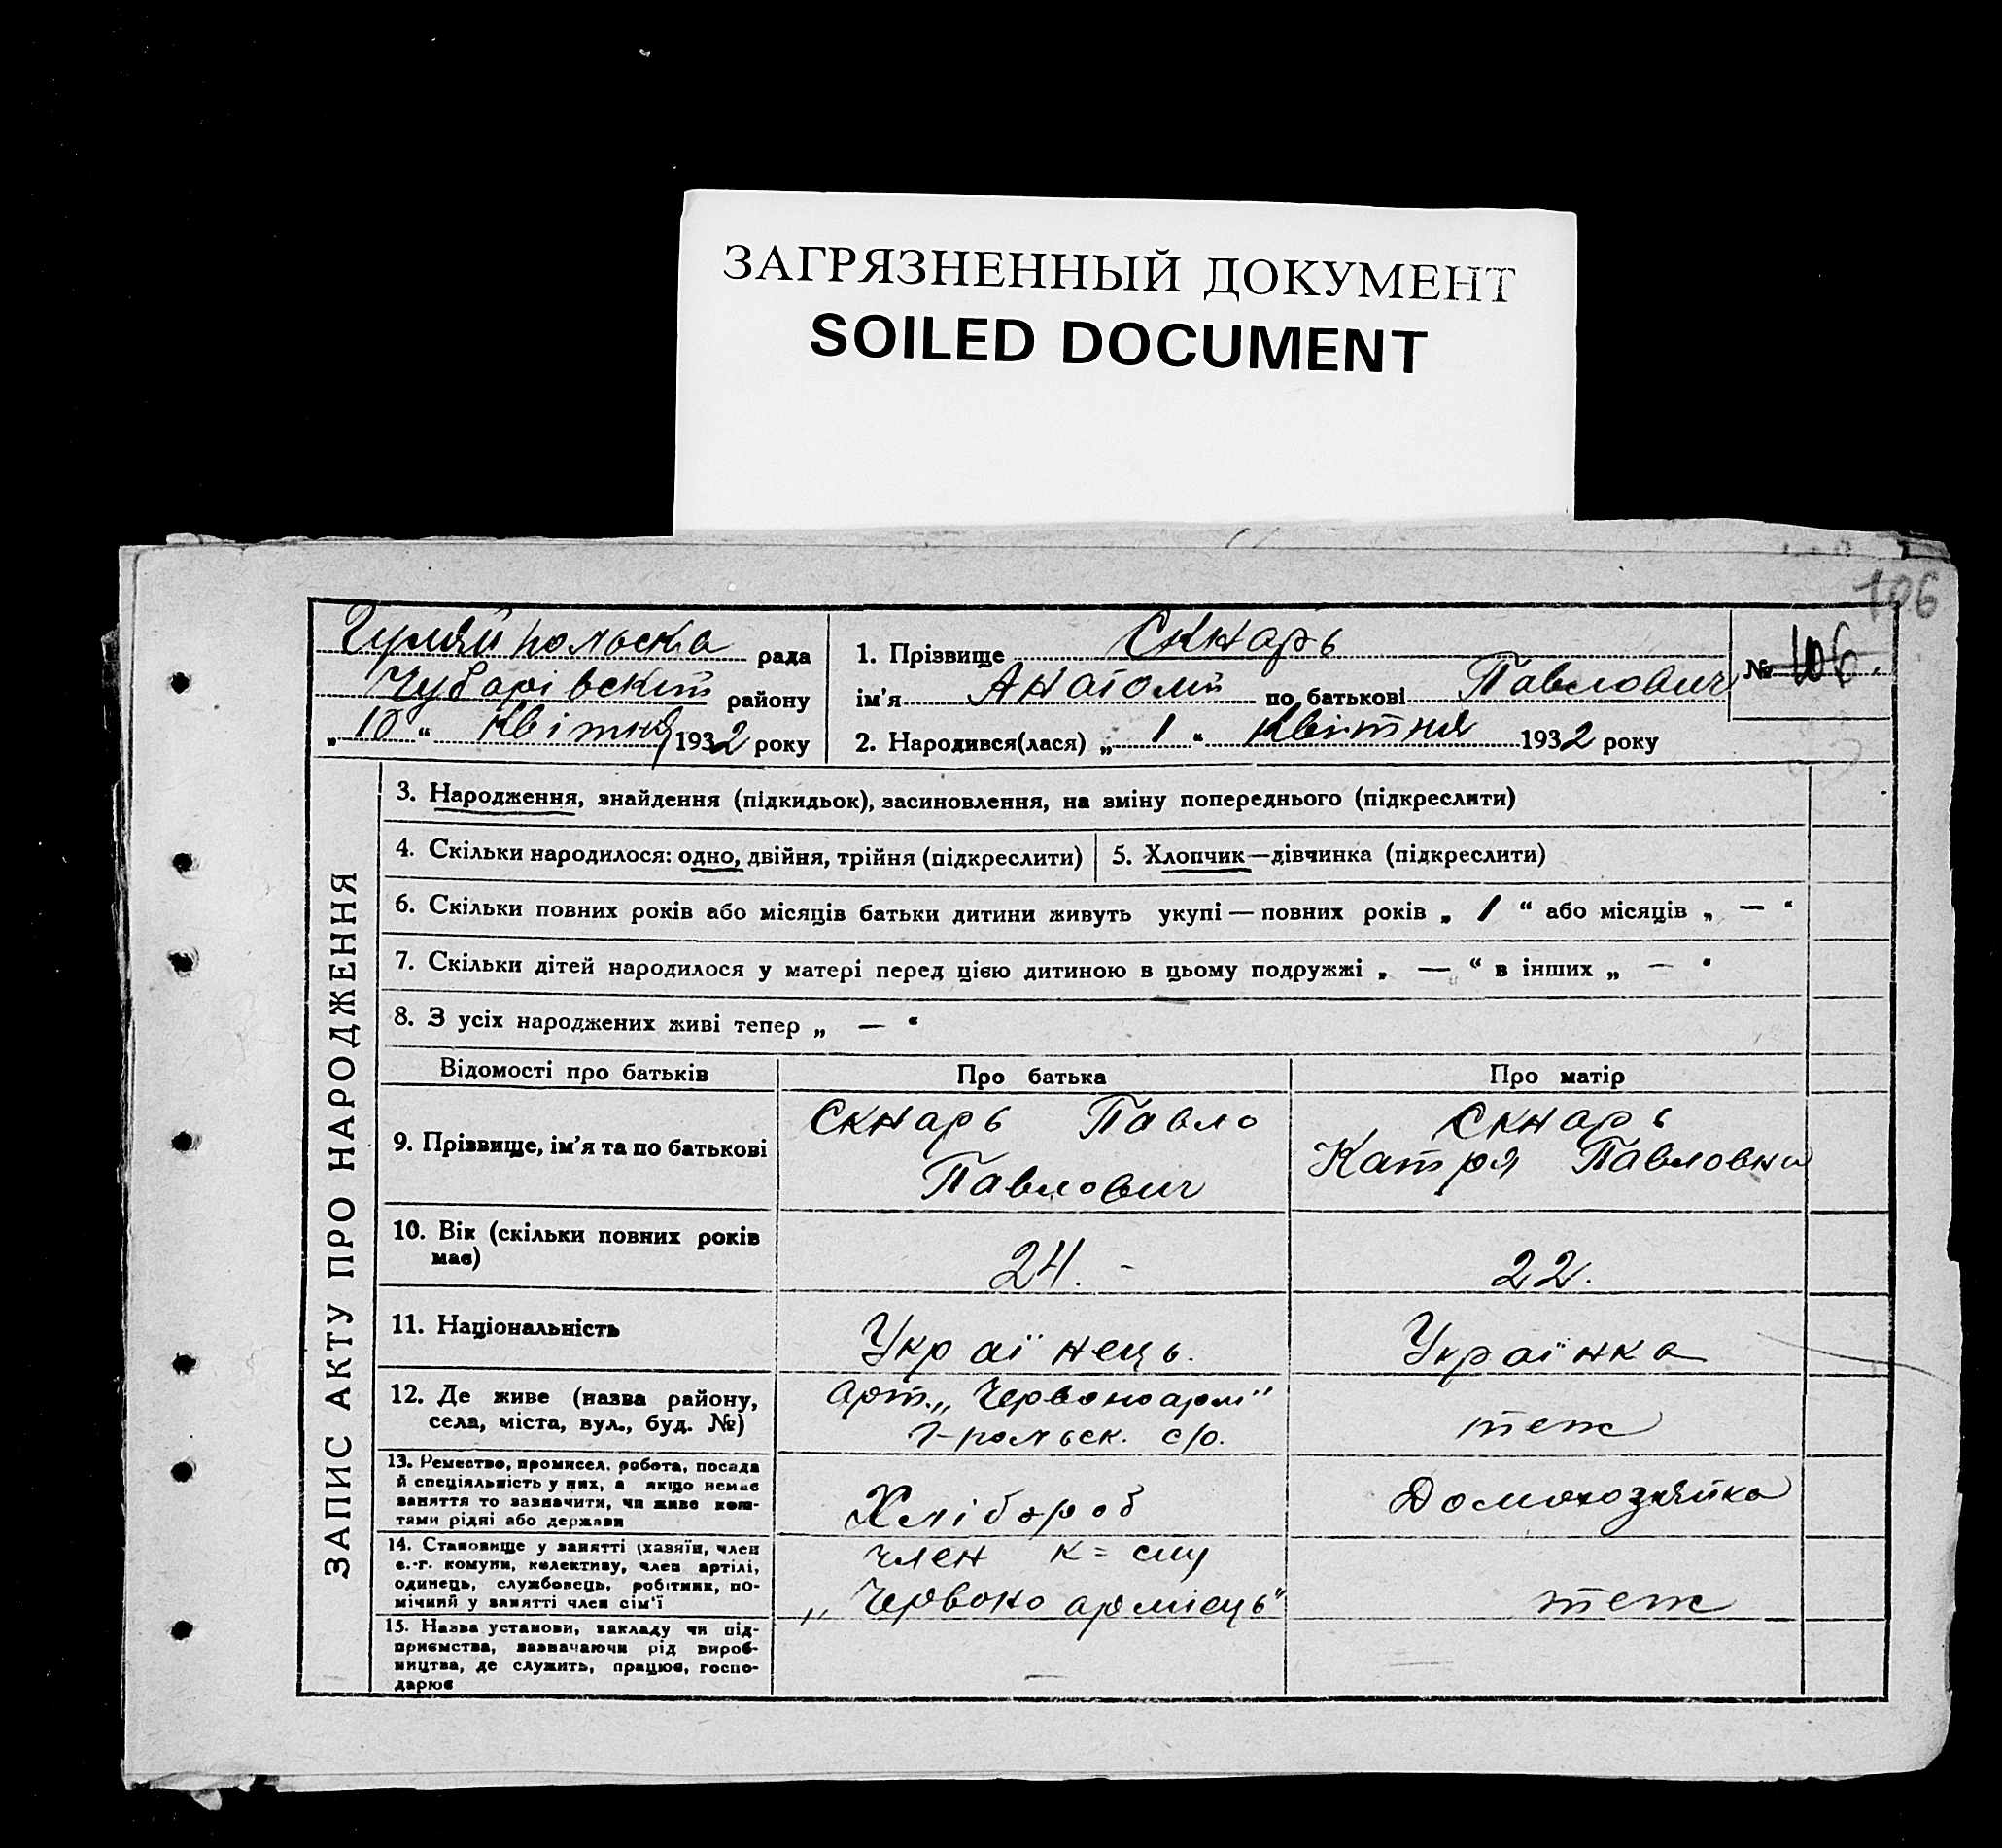 ЗАГРЯЗНЕННЫЙ ДОКУМЕНТ
SOILED DOCUMENT
106
Гуляйпольська рада
Чубарівский району
„10“ Квітня 1932 року
1. Прізвище Скнарь
ім'я Анатолий по батькові Павлович
№ 106.
2. Народився(лася) „1“ Квітня 1932 року
ЗАПИС АКТУ ПРО НАРОДЖЕННЯ
3. Народження, знайдення (підкидьок), засиновлення, на зміну попереднього (підкреслити)
4. Скільки народилося: одно, двійня, трійня (підкреслити)
5. Хлопчик—дівчинка (підкреслити)
6. Скільки повних років або місяців батьки дитини живуть укупі — повних років „ 1 “ або місяців „ — “
7. Скільки дітей народилося у матері перед цією дитиною в цьому подружжі „ — “ в інших „ — “
8. З усіх народжених живі тепер „ — “
Відомості про батьків
Про батька
Про матір
9. Прізвище, ім'я та по батькові
Скнарь Павло
Павлович
Скнарь
Катря Павловни
10. Вік (скільки повних років
має)
24. -
22.
11. Національність
Українець.
Українка
12. Де живе (назва району,
села, міста, вул., буд. №)
Арт. „Червоноарм"
Г-польск. с/о.
теж
13. Ремество, промисел, робота, посада
й спеціяльність у них, а якщо немає
заняття то зазначити, чи живе кош-
тами рідні або держави
Хлібороб
Домохозяйка
14. Становище у занятті (хазяїн, член
с.-г. комуни, колективу, член артілі,
одинець, службовець, робітник, по-
мічний у занятті член сім'ї
член к=спу
„Червоно армієць"
теж
15. Назва установи, закладу чи під-
приємства, зазначаючи рід вироб-
ництва, де служить, працює, госпо-
дарює
—
—